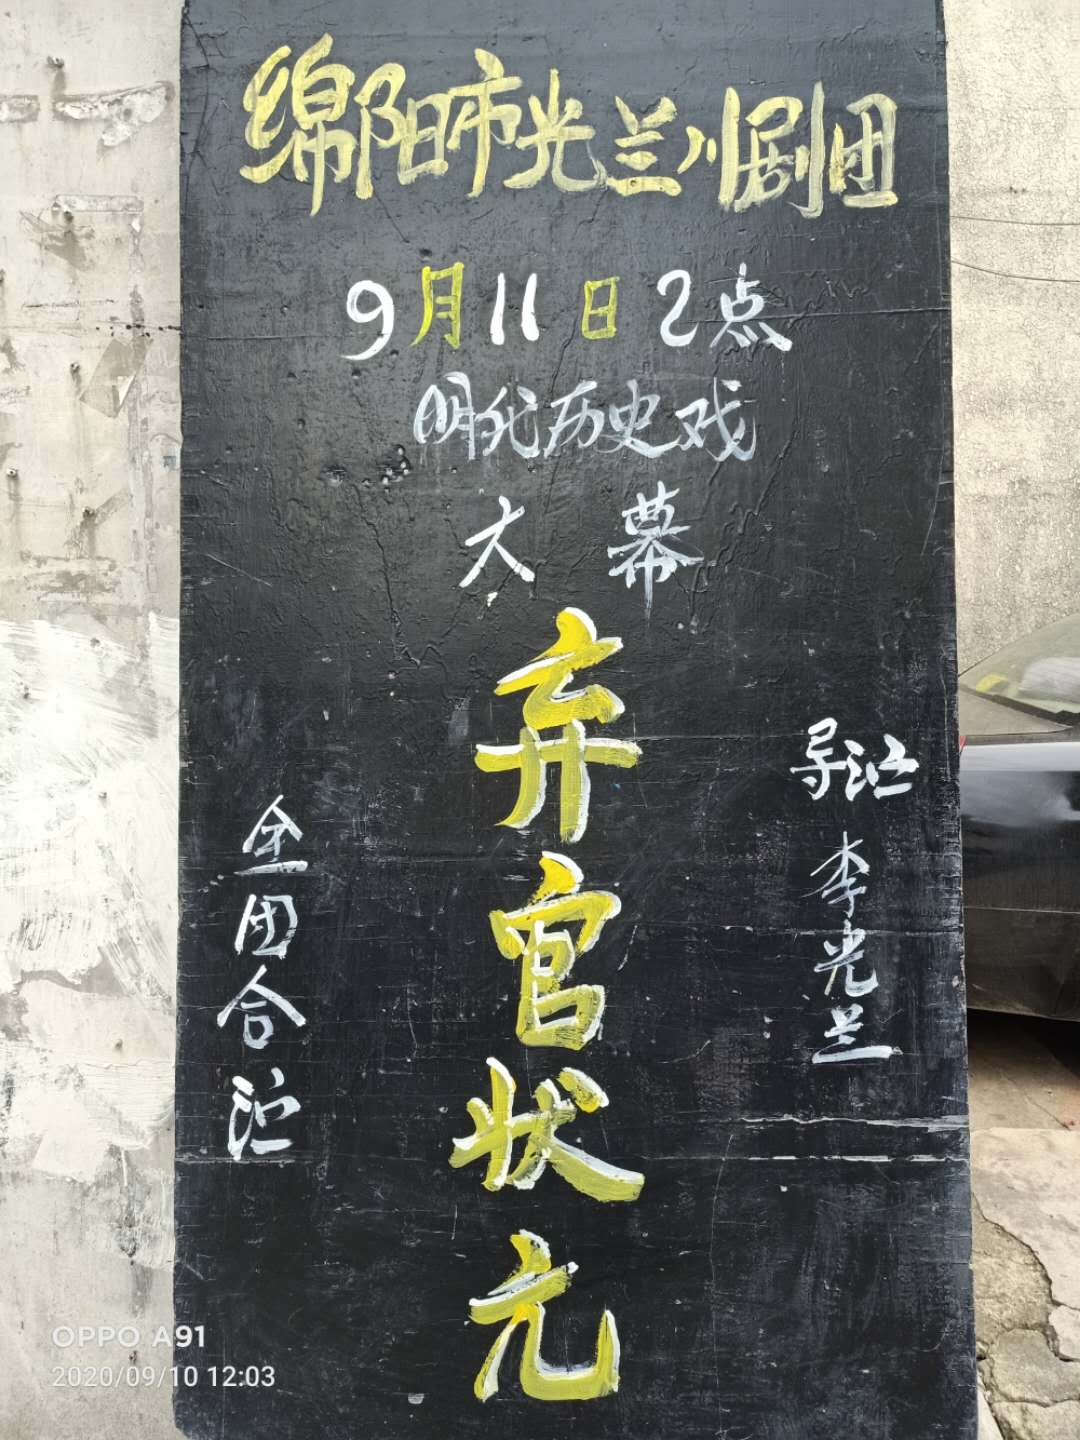 绵阳市光兰川剧团
9月11日2点
明代历史戏
大幕
导演 李光兰
弃官状元
全团合演
OPPO A91
2020/09/10 12:03